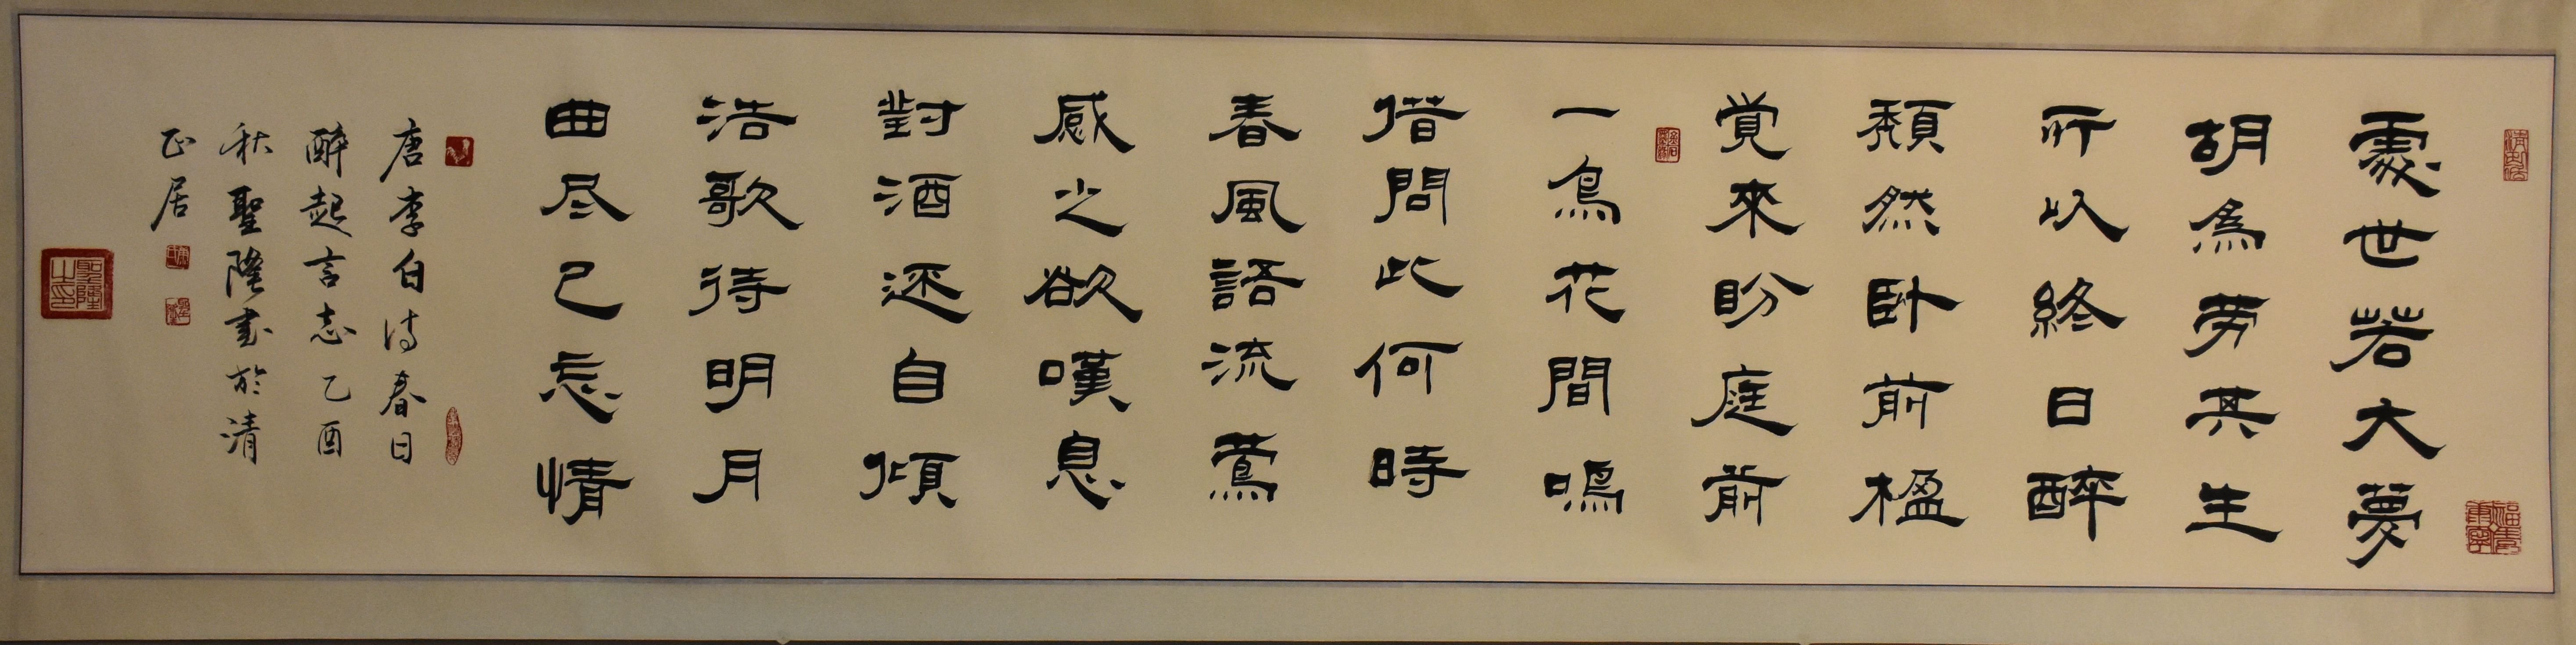 處世若大夢
胡為勞其生
所以終日醉
頹然卧前楹
覚來盼庭前
一鳥花間鳴
借問此何時
春風語流鶯
感之欲嘆息
對酒還自傾
浩歌待明月
曲尽已忘情
唐李白诗春日
醉起言志乙酉
秋聖隆書於清
正居
聖隆之印